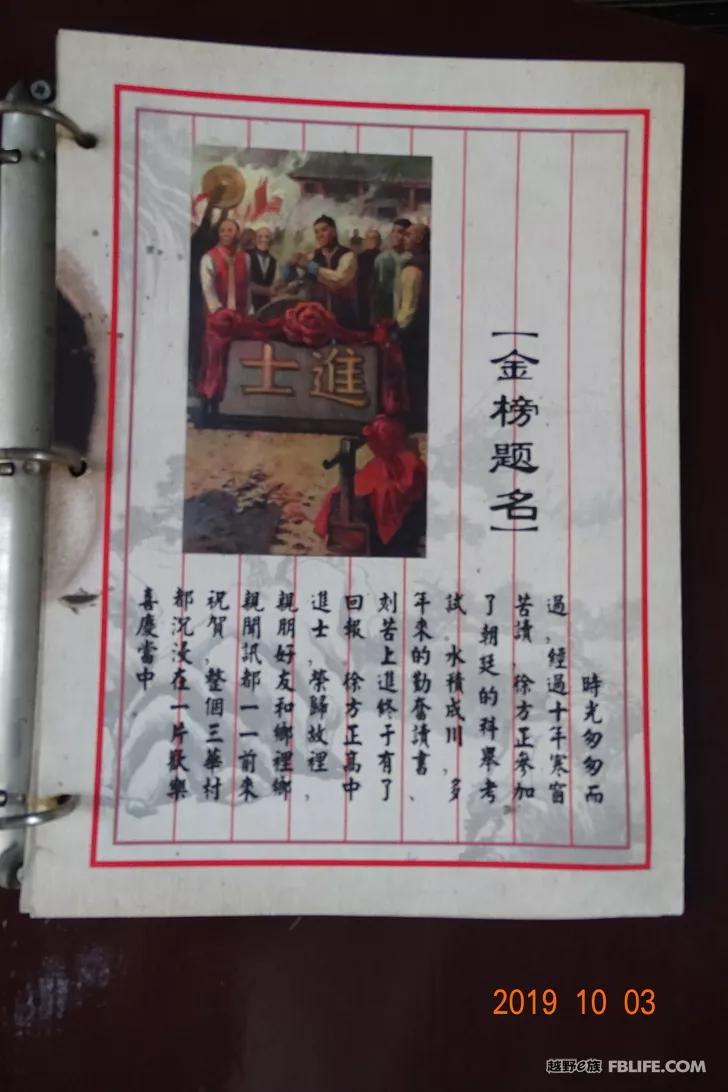 【金榜题名】
進士
時光匆匆而
過,經過十年寒窗
苦讀,徐方正參加
了朝廷的科舉考
試。水積成川,多
年來的勤奮讀書、
刻苦上進終于有了
回報。徐方正高中
進士,榮歸故裡,
親朋好友和鄉裡鄉
親聞訊都一一前來
祝賀,整個三華村
都沉浸在一片歡樂
喜慶當中
2019 10 03
越野e族 FBLIFE.COM